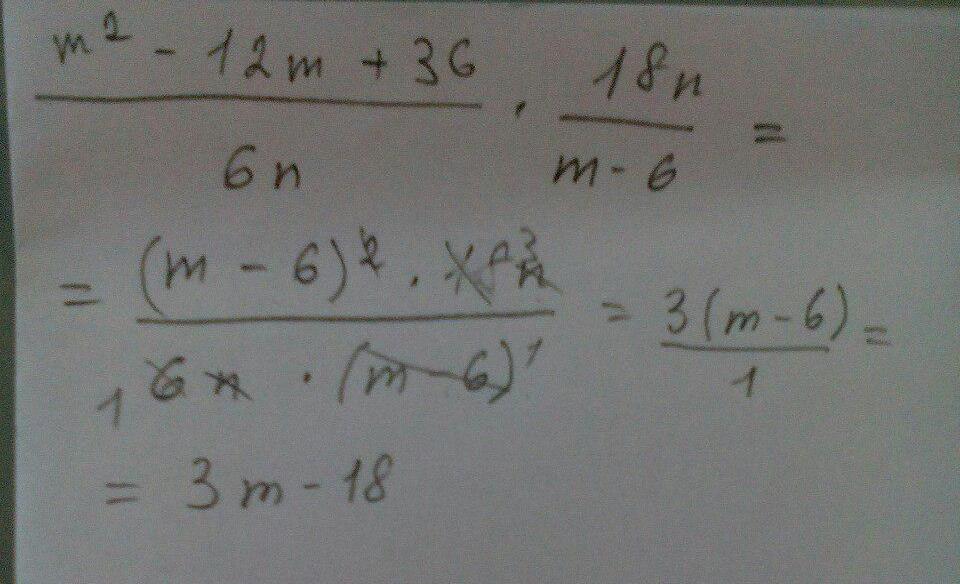 m² - 12m + 36 / 6n · 18n / m - 6 =
= (m - 6)² · 18n 3 / 1 6n · (m - 6) 1 = 3(m - 6) / 1 =
= 3m - 18